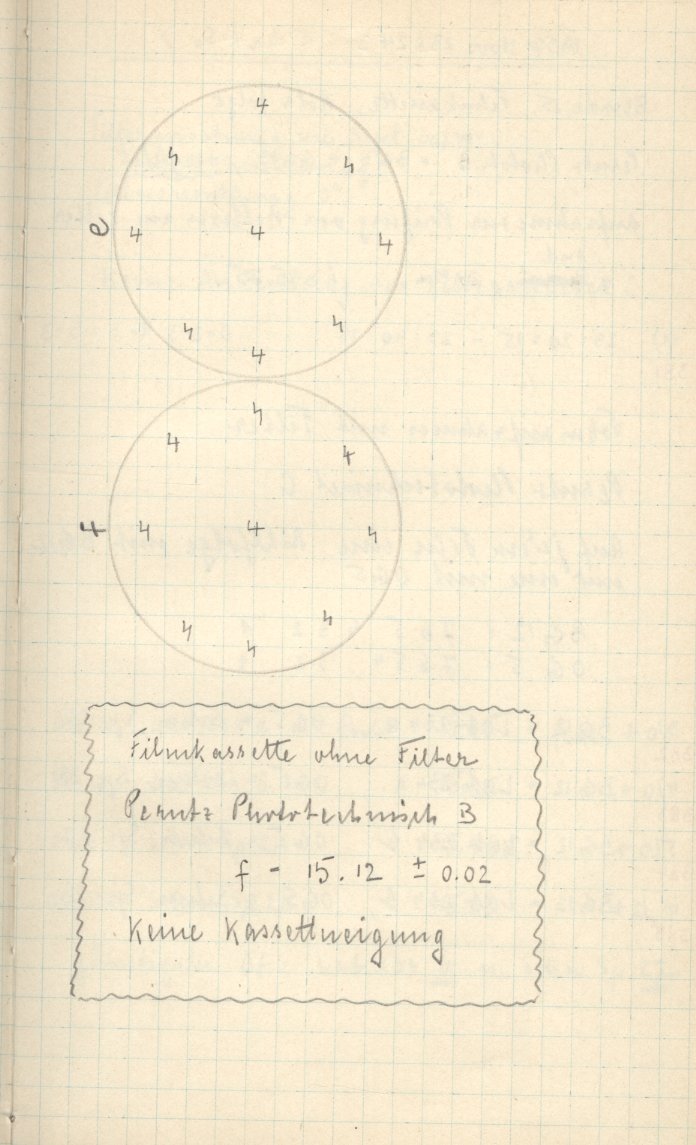 4
4 4
e 4 4 4
4 4
4
4
4 4
4 4 4 4
4 4
4
Filmkassette ohne Filter
Perutz Phototechnisch B
f = 15.12 ± 0.02
Keine Kassettneigung